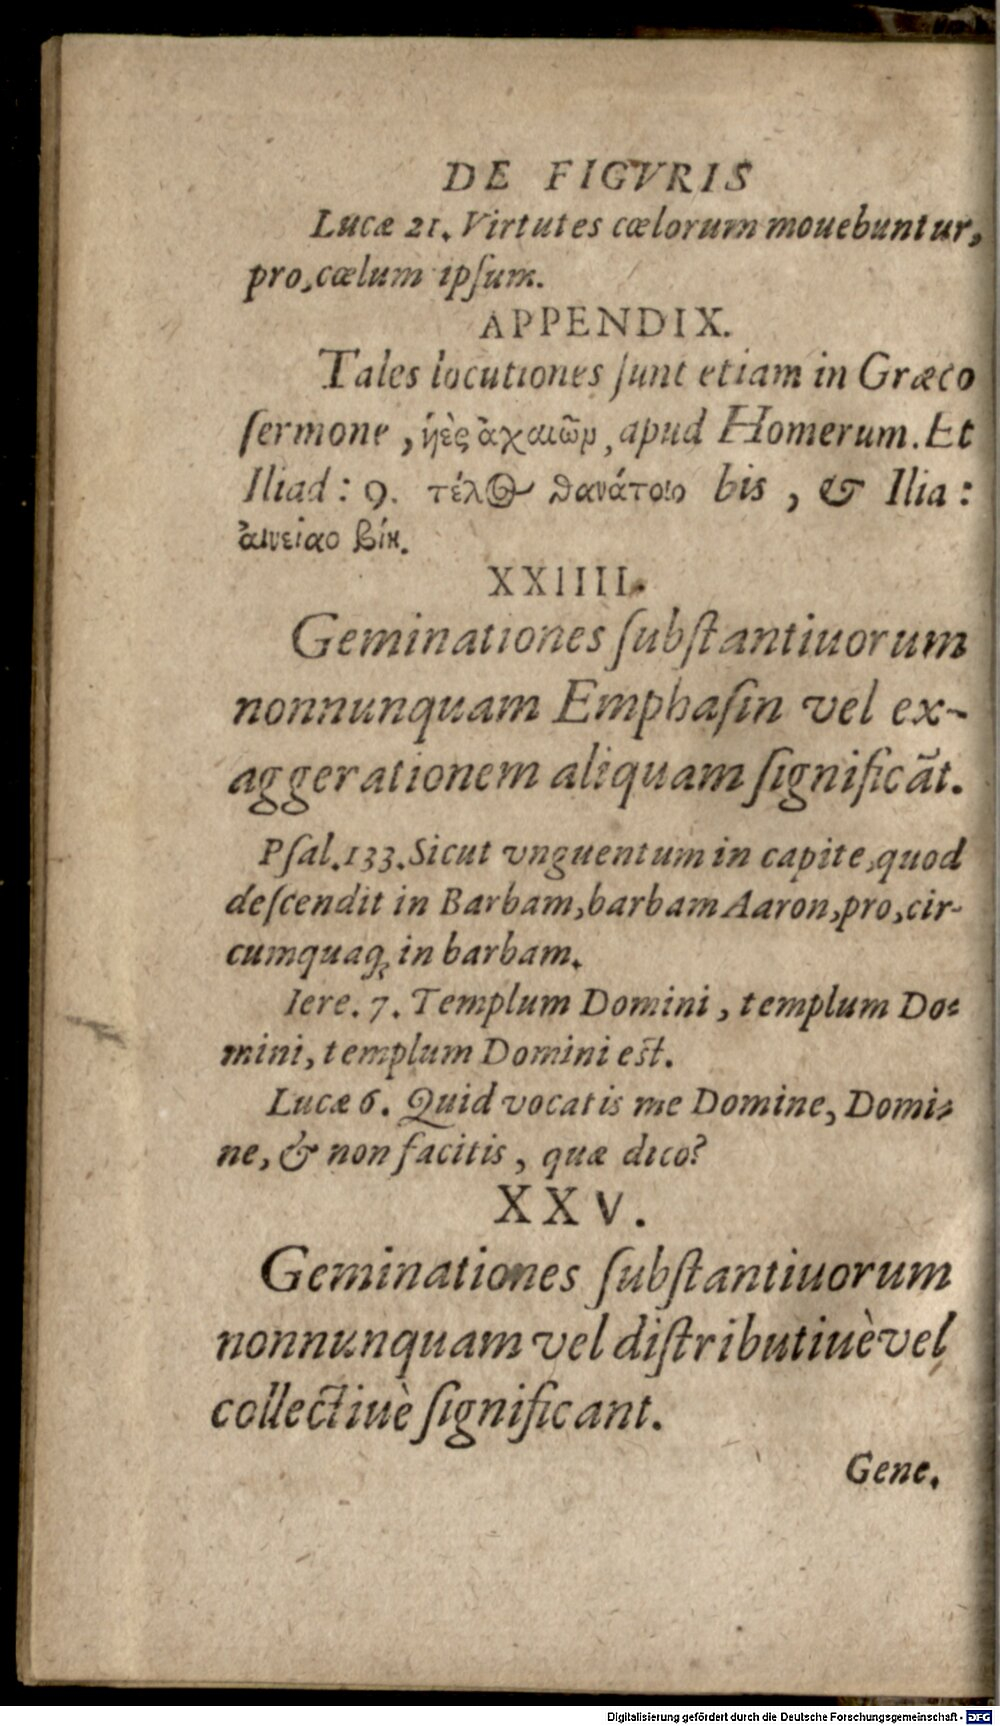 DE FIGVRIS
Lucæ 21. Virtutes cœlorum mouebuntur,
pro, cœlum ipſum.
APPENDIX.
Tales locutiones ſunt etiam in Græco
ſermone, ἠὲς ἀχαιῶν, apud Homerum. Et
Iliad: 9. τέλος θανάτοιο bis, & Ilia:
αἰνείαο βίη.
XXIIII.
Geminationes ſubſtantiuorum
nonnunquam Emphaſin vel ex-
aggerationem aliquam ſignificāt.
Pſal. 133. Sicut vnguentum in capite, quod
deſcendit in Barbam, barbam Aaron, pro, cir-
cumquaq; in barbam.
Iere. 7. Templum Domini, templum Do-
mini, templum Domini eſt.
Lucæ 6. Quid vocatis me Domine, Domi-
ne, & non facitis, quæ dico?
XXV.
Geminationes ſubſtantiuorum
nonnunquam vel diſtributiuè vel
collectiuè ſignificant.
Gene.
Digitalisierung gefördert durch die Deutsche Forschungsgemeinschaft - DFG